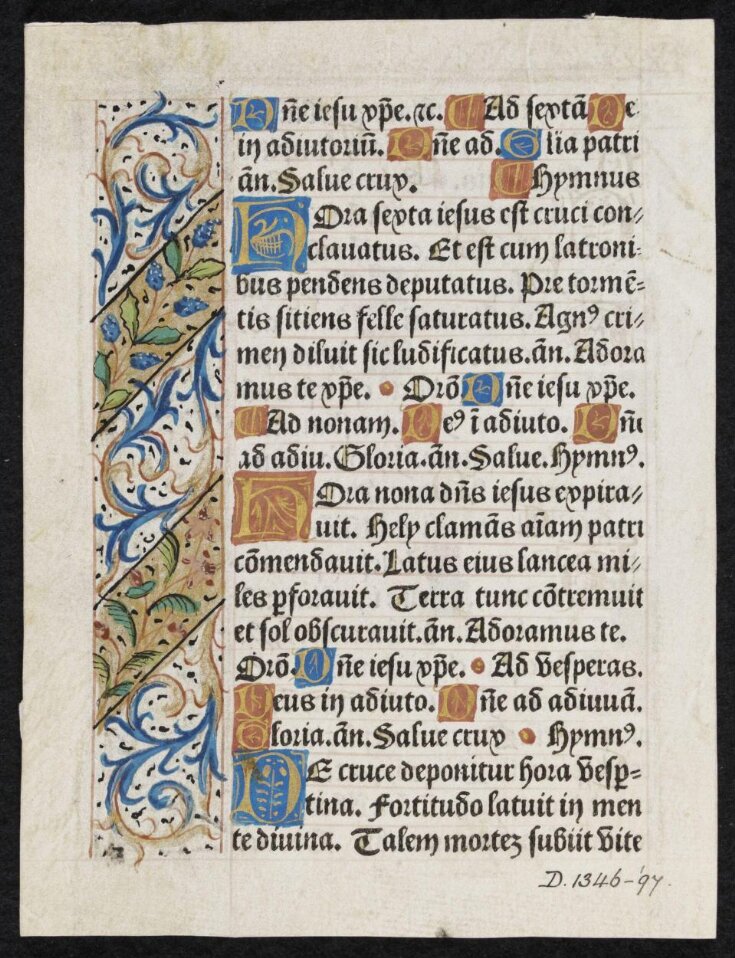 Dñe iesu xp̄e. ⁊c. Ad sextā De
in adiutoriū. Dñe ad. Glia patri
ān. Salue crux. Hymnus
HOra sexta iesus est cruci con⸗
clauatus. Et est cum latroni⸗
bus pendens deputatus. Pre tormē⸗
tis sitiens felle saturatus. Agnꝰ cri⸗
men diluit sic ludificatus. ān. Adora
mus te xp̄e. Orō Dñe iesu xp̄e.
Ad nonam. Deꝰ ī adiuto. Dñe
ad adiu. Gloria. ān. Salue. Hymnꝰ.
HOra nona dñs iesus expira⸗
uit. Hely clamās aīam patri
cōmendauit. Latus eius lancea mi⸗
les ꝑforauit. Terra tunc cōtremuit
et sol obscurauit. ān. Adoramus te.
Orō. Dñe iesu xp̄e. Ad vesperas.
Deus in adiuto. Dñe ad adiuuā.
Gloria. ān. Salue crux Hymnꝰ.
DE cruce deponitur hora vesꝑ⸗
tina. Fortitudo latuit in men
te diuina. Talem mortez subiit vite
D. 1346-'97.